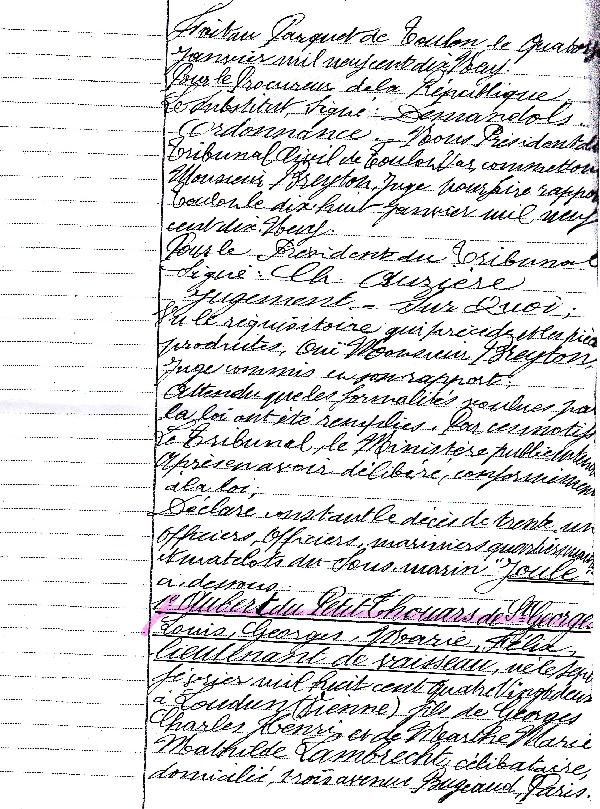 Fait au Parquet de Toulon le quatorze
Janvier mil neuf cent dix neuf.
Pour le Procureur de la République
Le Substitut, Signé: Demandols.
Ordonnance - Nous Président du
Tribunal Civil de Toulon Var, commettons
Monsieur Breyton, Juge pour faire rapport
Toulon le dix huit Janvier mil neuf
cent dix neuf.
Pour le Président du Tribunal
Signé: Ch Auzière
Jugement - Sur Quoi;
Vu le réquisitoire qui précède et les pièces
produites, Oui Monsieur Breyton,
Juge commis en son rapport;
Attendu que les formalités voulues par
la loi ont été remplies. Par ces motifs
Le Tribunal, le Ministère public entendu
Après en avoir délibéré, conformément
à la loi,
Déclare constant le décès de trente un
officiers, officiers, mariniers quartiers maîtres
et matelots du sous marin "Joule"
ci dessous
1° Aubert du Petit Thouars de St Georges
Louis, Georges, Marie, Félix,
lieutenant de vaisseau, né le
février mil huit cent quatre vingt deux
à Loudun (Vienne) fils de Georges
Charles Henri et de Marthe Marie
Mathilde Lambrecht, célibataire,
domicilié, trois avenue Bugeaud, Paris.